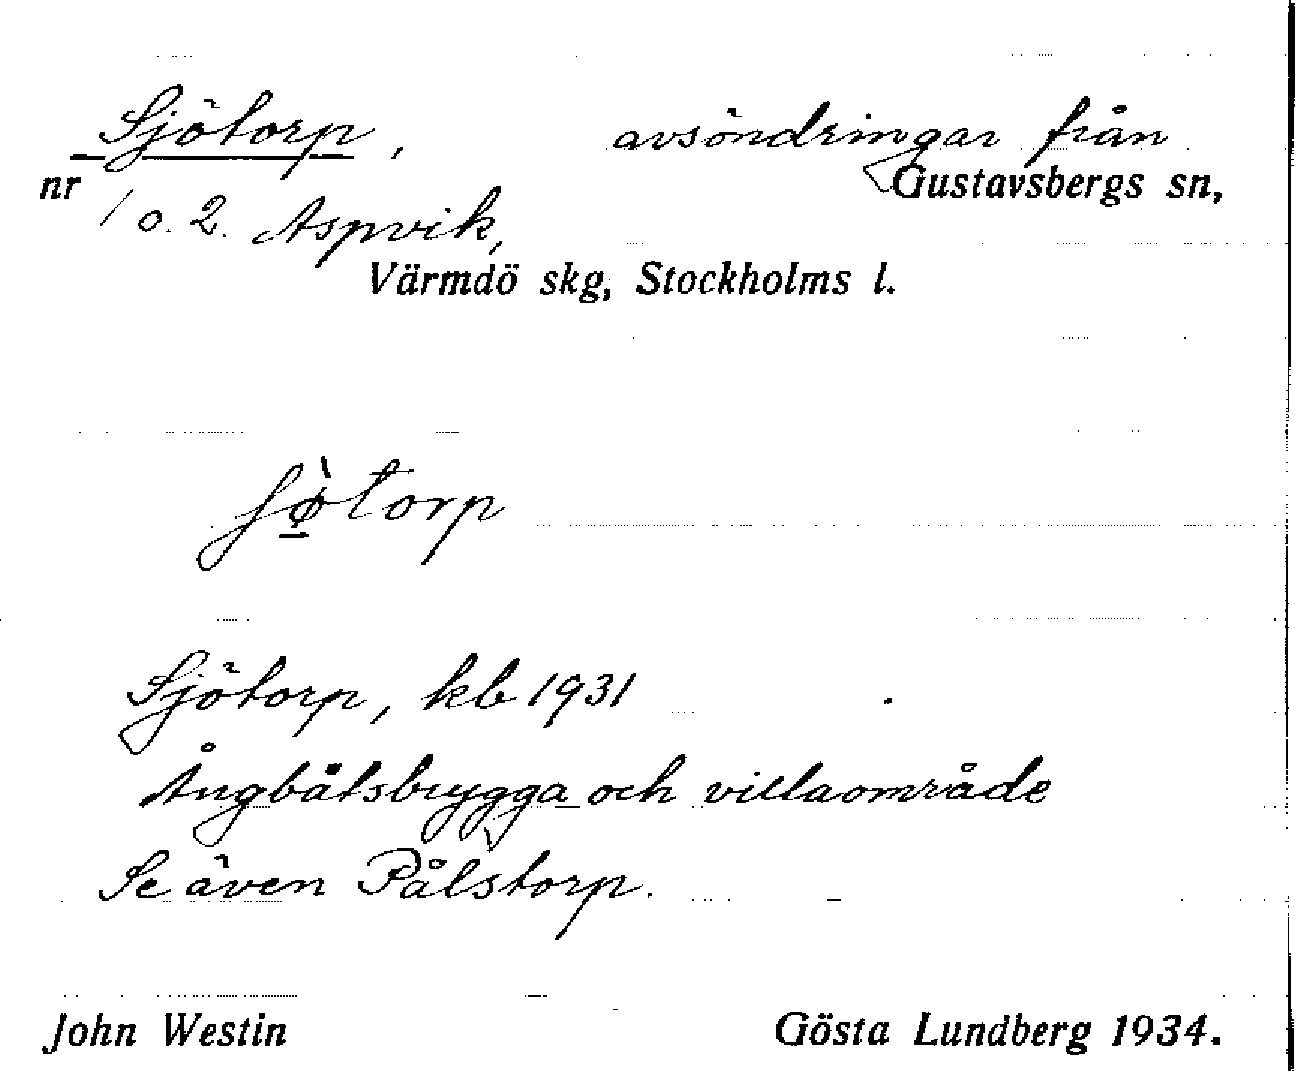 Sjötorp, avsöndringar från
nr 1 o. 2. Aspvik, Gustavsbergs sn,
Värmdö skg, Stockholms l.
ʃø̠̀torp
Sjötorp, kb 1931
Ångbåtsbrygga och villaområde
Se även Pålstorp.
John Westin Gösta Lundberg 1934.